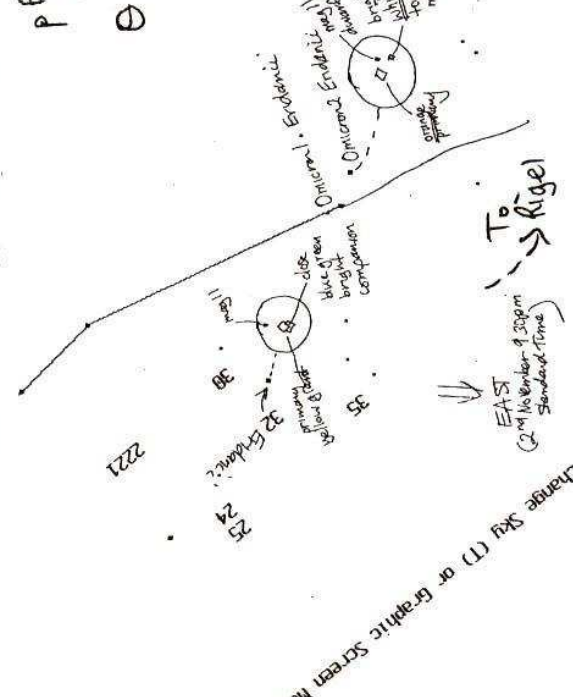 θ
Omicron1 Eridanii
Omicron2 Eridanii
mag 11
orange
primary
mag 11
close
blue green
bright
companion
primary
yellow
38
32 Eridanii
35
2221
24
25
To
Rigel
EAST
(2nd November 9.30pm
standard time)
Change Sky (T) or Graphic Screen